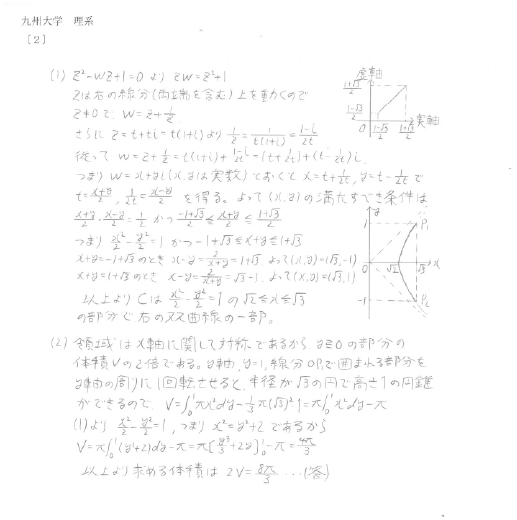 九州大学 理系
[2]
(1) z²-wz+1=0 より zw=z²+1
zは右の線分(両端を含む)上を動くので
z≠0で、w=z+1/z
さらに z=t+ti=t(1+i)より 1/z=1/t(1+i)=(1-i)/2t
従って w=z+1/z=t(1+i)+(1-i)/2t=(t+1/2t)+(t-1/2t)i
つまり w=x+yi(x,yは実数)とおくと x=t+1/2t, y=t-1/2t で
t=(x+y)/2, 1/2t=(x-y)/2 を得る。よって(x,y)の満たすべき条件は
(x+y)/2・(x-y)/2=1/2 かつ (-1+√3)/2≦(x+y)/2≦(1+√3)/2
つまり x²/2-y²/2=1 かつ -1+√3≦x+y≦1+√3
x+y=-1+√3のとき x-y=2/(x+y)=1+√3 よって(x,y)=(√3,-1)
x+y=1+√3のとき x-y=2/(x+y)=√3-1. よって(x,y)=(√3,1)
以上より Cは x²/2-y²/2=1 の √2≦x≦√3
の部分で右の双曲線の一部。
虚軸
(1+√3)/2
(1-√3)/2
O (1-√3)/2 (1+√3)/2 実軸
y
1 P₁
O √2 √3 x
-1 P₂
(2) 領域はx軸に関して対称であるから y≧0 の部分の
体積Vの2倍である。y軸, y=1, 線分OP₁で囲まれる部分を
y軸の周りに1回転させると、半径が√3の円で高さ1の円錐
ができるので、V=∫₀¹πx²dy-1/3π(√3)²・1=π∫₀¹x²dy-π
(1)より x²/2-y²/2=1, つまり x²=y²+2 であるから
V=π∫₀¹(y²+2)dy-π=π[y³/3+2y]₀¹-π=4π/3
以上より求める体積は 2V=8π/3 …(答)